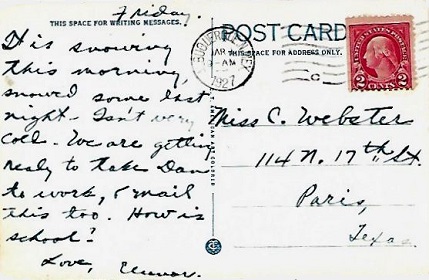 Friday.
THIS SPACE FOR WRITING MESSAGES.
POST CARD
THIS SPACE FOR ADDRESS ONLY.
1927
AM
UNITED STATES POSTAGE
2 CENTS 2
It is snowing
this morning,
snowed some last
night. Isn't very
cold. We are getting
ready to take Dan
to work, & mail
this too. How is
school?
Love,
Eleanor.
Miss C. Webster
114 N. 17th St.
Paris,
Texas